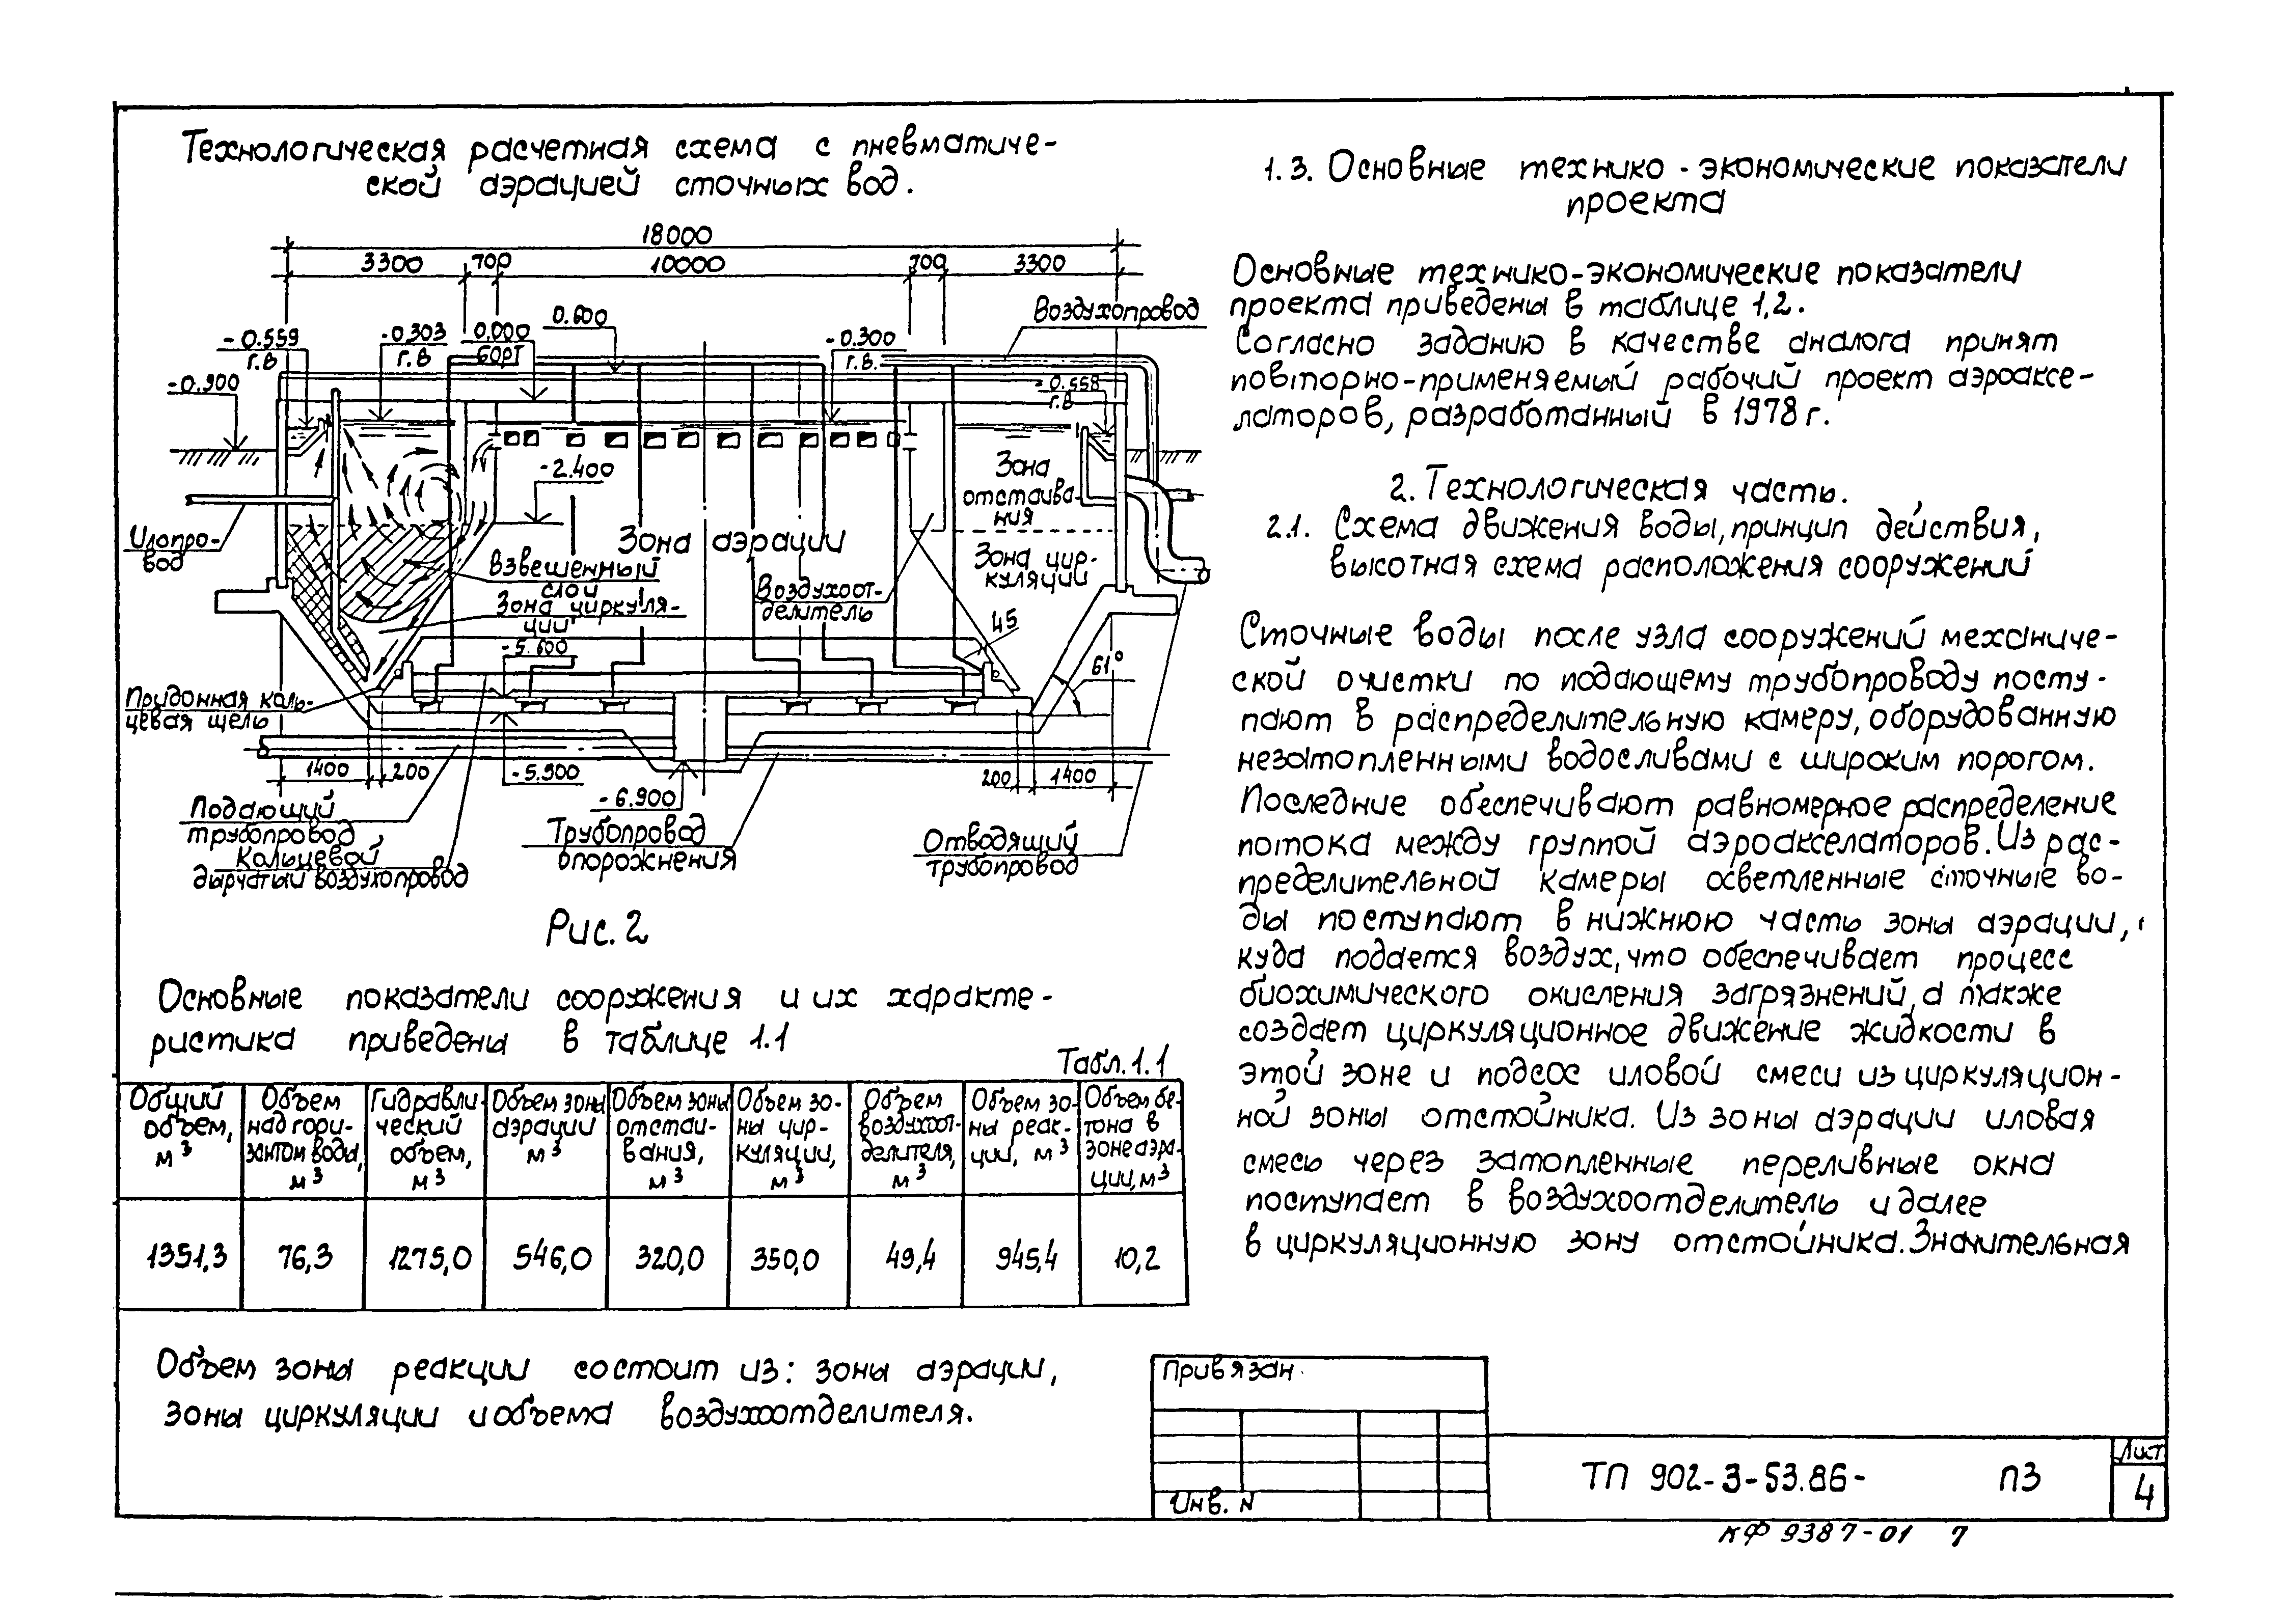 Технологическая расчетная схема с пневматиче-
ской аэрацией сточных вод.
18000
3300 700 10000 700 3300
Воздухопровод
-0.559
г.в
-0.303
г.в
0.000
борт
0.600
-0.300
г.в.
-0.558
г.в
-0.900
-2.400
Зона
отстаива-
ния
Зона аэрации
Зона цир-
куляции
Илопро-
вод
Взвешенный
слой
Зона циркуля-
ции
Воздухоот-
делитель
45
61°
-5.600
Придонная коль-
цевая щель
1400 200
-5.900
200 1400
-6.900
Подающий
трубопровод
Кольцевой
дырчатый воздухопровод
Трубопровод
опорожнения
Отводящий
трубопровод
Рис. 2
Основные показатели сооружения и их характе-
ристика приведены в таблице 1.1
Табл. 1.1
Общий объем, м³
Объем над гори-зонтом воды, м³
Гидравли-ческий объем, м³
Объем зоны аэрации м³
Объем зоны отстаи-вания, м³
Объем зо-ны цир-куляции, м³
Объем воздухоот-делителя, м³
Объем зо-ны реак-ции, м³
Объем бе-тона в зоне аэра-ции, м³
1351,3 76,3 1275,0 546,0 320,0 350,0 49,4 945,4 10,2
Объем зоны реакции состоит из: зоны аэрации,
зоны циркуляции и объема воздухоотделителя.
1.3. Основные технико-экономические показатели
проекта
Основные технико-экономические показатели
проекта приведены в таблице 1.2.
Согласно заданию в качестве аналога принят
повторно-применяемый рабочий проект аэроаксе-
латоров, разработанный в 1978 г.
2. Технологическая часть.
2.1. Схема движения воды, принцип действия,
высотная схема расположения сооружений
Сточные воды после узла сооружений механиче-
ской очистки по подающему трубопроводу посту-
пают в распределительную камеру, оборудованную
незатопленными водосливами с широким порогом.
Последние обеспечивают равномерное распределение
потока между группой аэроакселаторов. Из рас-
пределительной камеры осветленные сточные во-
ды поступают в нижнюю часть зоны аэрации,
куда подается воздух, что обеспечивает процесс
биохимического окисления загрязнений, а также
создает циркуляционное движение жидкости в
этой зоне и подсос иловой смеси из циркуляцион-
ной зоны отстойника. Из зоны аэрации иловая
смесь через затопленные переливные окна
поступает в воздухоотделитель и далее
в циркуляционную зону отстойника. Значительная
Привязан
Инв. N
ТП 902-3-53.86- ПЗ
Лист
4
КФ 9387-01 7